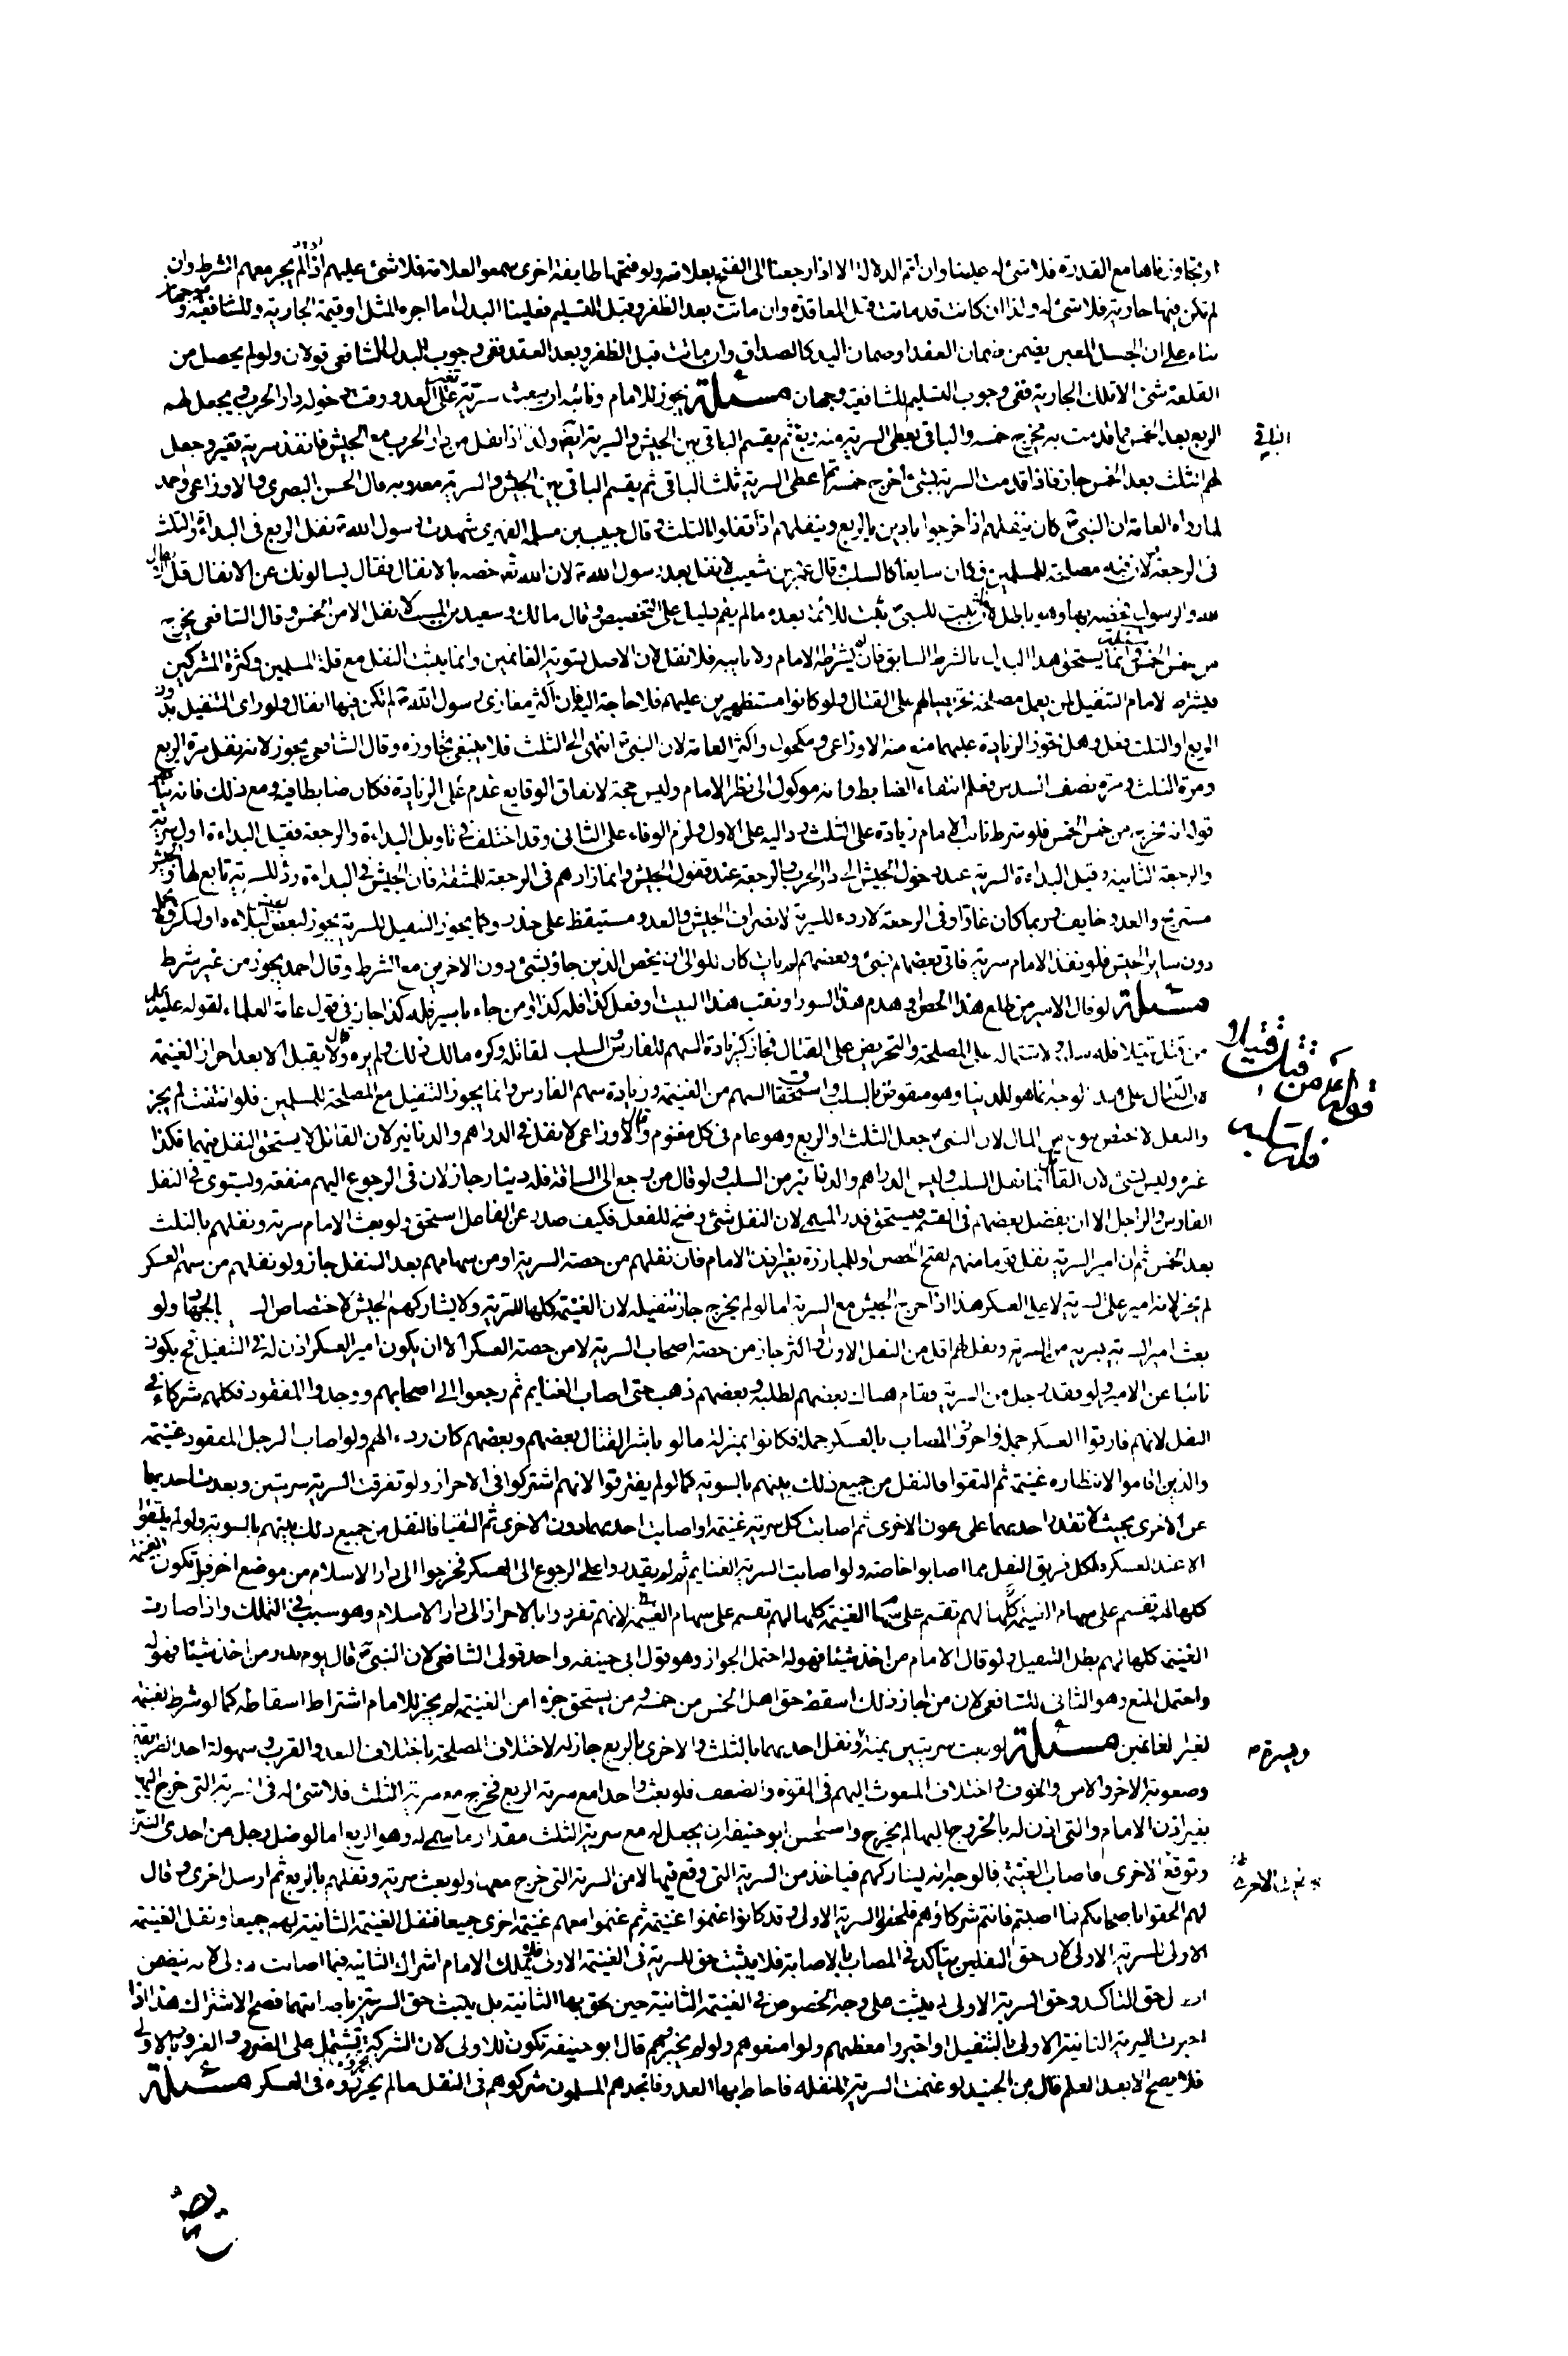 او تجاوزناها مع القدرة فلا شئ له علينا وان اتم الدلالة الا اذا رجعنا الى الفتح بعلامته ولو فتحها طايفة اخرى سمعوا العلامة فلا شئ عليهم اذ لم يجر معهم الشرط وان
لم تكن فيها جارية فلا شئ له وكذا ان كانت قد ماتت قبل المعاقدة وان ماتت بعد الظفر وقبل التسليم فعلينا البدل اما اجرة المثل او قيمة الجارية وللشافعية وجهان
بناء على ان الجعل المعين يضمن ضمان العقد او ضمان اليد كالصداق وان ماتت قبل الظفر وبعد العقد ففي وجوب البدل للشافعي قولان ولو لم يحصل من
القلعة شئ الا تلك الجارية ففي وجوب التسليم للشافعية وجهان مسئلة يجوز للامام ونائبه ان يبعث سرية على العدو وقت دخوله دار الحرب ويجعل لهم
الربع بعد الخمس فما قدمت به يخرج خمسه والباقي يعطى السرية منه ربع ثم يقسم الباقي بين الجيش والسرية ايضا وكذا اذا قفل من دار الحرب مع الجيش فانفذ سرية تغير وجعل
لهم الثلث بعد الخمس جاز فاذا قدمت السرية بشئ اخرج خمسه ثم اعطى السرية ثلث الباقي ثم يقسم الباقي بين الجيش والسرية معه وبه قال الحسن البصري والاوزاعي واحمد
لما رواه العامة ان النبي ص كان ينفلهم اذا خرجوا بادين بالربع وينفلهم اذا قفلوا الثلث وقال حبيب بن مسلمة الفهري شهدت رسول الله ص نفل الربع في البداة والثلث
في الرجعة ولان فيه مصلحة للمسلمين فكان سايغا كالسلب وقال عمرو بن شعيب لا نفل بعد رسول الله ص لان الله تعالى خصه بالانفال فقال يسالونك عن الانفال قل الانفال
لله والرسول فخصه بها وهو باطل لان ما ثبت للنبي ص ثبت للائمة بعده ما لم يقم دليل على التخصيص وقال مالك وسعيد بن المسيب لا نفل الا من الخمس وقال الشافعي يخرج
من خمس الخمس وانما يستحق هذا النفل بالشرط السابق فان لم يشرطه الامام ولا نايبه فلا نفل لان الاصل تسوية الغانمين وانما يثبت النفل مع قلة المسلمين وكثرة المشركين
فيشرط الامام التنفيل لمن يعمل مصلحة تحريصا لهم على القتال ولو كانوا مستظهرين عليهم فلا حاجة اليه فان اكثر مغازي رسول الله ص لم تكن فيها انفال ولو راى التنفيل بدون
الربع او الثلث فعل وهل تجوز الزيادة عليهما منع منه الاوزاعي ومكحول واكثر العامة لان النبي ص انتهى الى الثلث فلا ينبغي تجاوزه وقال الشافعي يجوز لانه نفل مرة الربع
ومرة الثلث ومرة نصف السدس فعلم انتفاء الضابط وانه موكول الى نظر الامام وليس حجة لاتفاق الوقايع على عدم الزيادة فكان ضابطا فيه ومع ذلك فانه ينافي
قوله انه يخرج من خمس الخمس فلو شرط نائب الامام زيادة على الثلث رد اليه على الاول ولزم الوفاء على الثاني وقد اختلف في تاويل البداءة والرجعة فقيل البداءة اول سرية
والرجعة الثانية وقيل البداءة السرية عند دخول الجيش الى دار الحرب والرجعة عند قفول الجيش وانما زادهم في الرجعة للمشقة فان الجيش في البداءة ردء للسرية تابع لها والجيش
مستريح والعدو خايف وربما كان غارا وفي الرجعة لا ردء للسرية لانصراف الجيش والعدو مستيقظ على حذر وكما يجوز التنفيل للسرية يجوز لبعض الجيش لبلائه او لمكروه تحمله
دون ساير الجيش فلو نفذ الامام سرية فاتى بعضهم بشئ وبعضهم لم يات كان للوالي ان يخص الذين جاؤ بشئ دون الاخرين مع الشرط وقال احمد يجوز من غير شرط
مسئلة لو قال الامير من طلع هذا الحصن او هدم هذا السور او نقب هذا البيت او فعل كذا فله كذا او من جاء باسير فله كذا جاز في قول عامة العلماء لقوله عليه السلام
من قتل قتيلا فله سلبه ولاشتماله على المصلحة والتحريض على القتال فجاز كزيادة السهم للفارس والسلب للقاتل وكره مالك ذلك ولم يره وقال لا يقبل الا بعد احراز الغنيمة
لان القتال على هذا الوجه انما هو للدنيا وهو منقوض بالسلب واستحقاق السهم من الغنيمة وزيادة سهم الفارس وانما يجوز التنفيل مع المصلحة للمسلمين فلو انتفت لم يجز
والنفل لا يختص بنوع من المال لان النبي ص جعل الثلث او الربع وهو عام في كل مغنوم وقال الاوزاعي لا نفل في الدراهم والدنانير لان القاتل لا يستحق النفل منهما فكذا
غيره وليس بشئ لان القاتل انما نفل السلب وليس الدراهم والدنانير من السلب ولو قال من رجع الى الساقة فله دينار جاز لان في الرجوع اليهم منفعة ويستوى في النفل
الفارس والراجل الا ان يفضل بعضهم في القسم فيستحق قدر المسمى لان النفل شئ رضخ للفعل فكيف صدر عن الفاعل استحق ولو بعث الامام سرية ونفلهم بالثلث
بعد الخمس ثم ان امير السرية نفل قوما منهم لفتح الحصن او للمبارزة بغير اذن الامام فان نفلهم من حصة السرية او من سهامهم بعد النفل جاز ولو نفلهم من سهم العسكر
لم يجز لانه امير على السرية لا على العسكر هذا اذا خرج الجيش مع السرية اما لو لم يخرج جاز تنفيله لان الغنيمة كلها للسرية ولا يشاركهم الجيش لاختصاص الـ بالجهاد ولو
بعث امير السرية سرية من السرية ونفل لهم اقل من النفل الاول او اكثر جاز من حصة اصحاب السرية لا من حصة العسكر الا ان يكون امير العسكر اذن له في التنفيل فح يكون
نائبا عن الامير ولو فقد رجل من السرية فقام هناك بعضهم لطلبه وبعضهم ذهب حتى اصاب الغنايم ثم رجعوا الى اصحابهم ووجدوا المفقود فكلهم شركاء في
النفل لانهم فارقوا العسكر جملة واحرزوا المصاب بالعسكر جملة فكانوا بمنزلة ما لو باشر القتال بعضهم وبعضهم كان ردءا لهم ولو اصاب الرجل المفقود غنيمة
والذين اقاموا لانتظاره غنيمة ثم التقوا فالنفل من جميع ذلك بينهم بالسوية كما لو لم يفترقوا لانهم اشتركوا في الاحراز ولو تفرقت السرية سريتين وبعدت احديهما
عن الاخرى بحيث لا تقدر احديهما على عون الاخرى ثم اصابت كل سرية غنيمة او اصابت احديهما دون الاخرى ثم التقيا فالنفل من جميع ذلك بينهم بالسوية ولو لم يلتقوا
الا عند العسكر ولكل فريق النفل مما اصابوا خاصة ولو اصابت السرية الغنايم ثم لم يقدروا على الرجوع الى العسكر فخرجوا الى دار الاسلام من موضع اخر قبل تكون الغنيمة
كلها لهم تقسم على سهام الغنيمة كلها لهم تقسم على سهام الغنيمة كلها لهم تقسم على سهام الغنيمة لانهم تفردوا بالاحراز الى دار الاسلام وهو سبب في التملك واذا صارت
الغنيمة كلها لهم بطل التنفيل ولو قال الامام من اخذ شيئا فهو له احتمل الجواز وهو قول ابي حنيفه واحد قولي الشافعي لان النبي ص قال يوم بدر من اخذ شيئا فهو له
واحتمل المنع وهو الثاني للشافعي لان من اجاز ذلك اسقط حق اهل الخمس من خمسه ومن يستحق جزءا من الغنيمة لم يجز للامام اشتراط اسقاطه كما لو شرط الغنيمة
لغير الغانمين مسئلة لو بعث سريتين يمنة ونفل احديهما بالثلث والاخرى بالربع جاز له لاختلاف المصلحة باختلاف البعد والقرب وسهولة احد الطريقين
وصعوبة الاخر والامن والخوف واختلاف المبعوث اليهم في القوة والضعف فلو بعث واحدا مع سرية الربع فخرج مع سرية الثلث فلا شئ له في السرية التي خرج اليها
بغير اذن الامام والتي اذن له بالخروج اليها لم يخرج واستحسن ابو حنيفة ان يجعل له مع سرية الثلث مقدار ما سمى له وهو الربع اما لو ضل رجل من احدى السريتين
ووقع في الاخرى فاصاب الغنيمة فالوجه انه يشاركهم فياخذ من السرية التي وقع فيها لا من السرية التي خرج معها ولو بعث سرية ونفلهم بالربع ثم ارسل اخرى وقال
لهم الحقوا باصحابكم فما اصبتم فانتم شركاؤهم فلحقوا السرية الاولى وقد كانوا غنموا غنيمة ثم غنموا معهم غنيمة اخرى جميعا فنفل الغنيمة الثانية لهم جميعا ونفل الغنيمة
الاولى للسرية الاولى لان حق النفلين يتاكد في المصاب بالاصابة فلا يثبت حق للسرية في الغنيمة الاولى فلا يملك الامام اشراك الثانية فيما اصابت الاولى لانه يتضمن
ابطال حق التاكد وحق السرية الاولى لم يثبت على وجه الخصوص في الغنيمة الثانية حين لحق بها الثانية بل يثبت حق السريتين باصابتهما فصح الاشتراك هذا اذا
اخبرت السرية الثانية الاولى بالتنفيل او اخبروا معظمهم ولو لم يخبروهم قال ابو حنيفه تكون للاولى لان الشركة تشتمل على الضرر والغرور بالاولى
فلا يصح الا بعد العلم قال ابن الجنيد لو غنمت السرية المنفلة فاحاط بها العدو فانجدهم المسلمون شركوهم في النفل ما لم يحرزوه في العسكر مسئلة
الباقي
قوله ع من قتل قتيلا فله سلبه
ويسرة ص